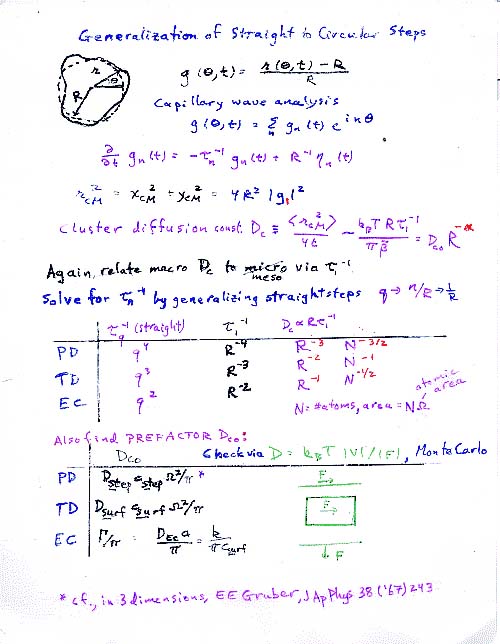 Generalization of Straight to Circular Steps
r
θ
R
g(θ,t) = r(θ,t) - R / R
Capillary wave analysis
g(θ,t) = Σn gn(t) e^inθ
∂/∂t gn(t) = -τn^-1 gn(t) + R^-1 ηn(t)
r²CM = x²CM + y²CM = 4R²|g1|²
Cluster diffusion const. Dc ≡ <r²CM>/4t ~ kBT R τ1^-1 / π β̃ = Dco R^-α
Again, relate macro Dc to micro via τ1^-1
meso
Solve for τn^-1 by generalizing straight steps q → n/R → 1/R
τq^-1 (straight) τ1^-1 Dc ∝ Rτ1^-1
PD q^4 R^-4 R^-3 N^-3/2
TD q^3 R^-3 R^-2 N^-1
EC q^2 R^-2 R^-1 N^-1/2
atomic area
N = # atoms, area = NΩ
Also find PREFACTOR Dco:
Dco Check via D = kBT |V|/|F|, Monte Carlo
PD Dstep cstep Ω²/π * F
TD Dsurf csurf Ω²/π F
EC Γ/π = DEC a/π = k/π csurf F
* cf., in 3 dimensions, EE Gruber, J Ap Phys 38 ('67) 243